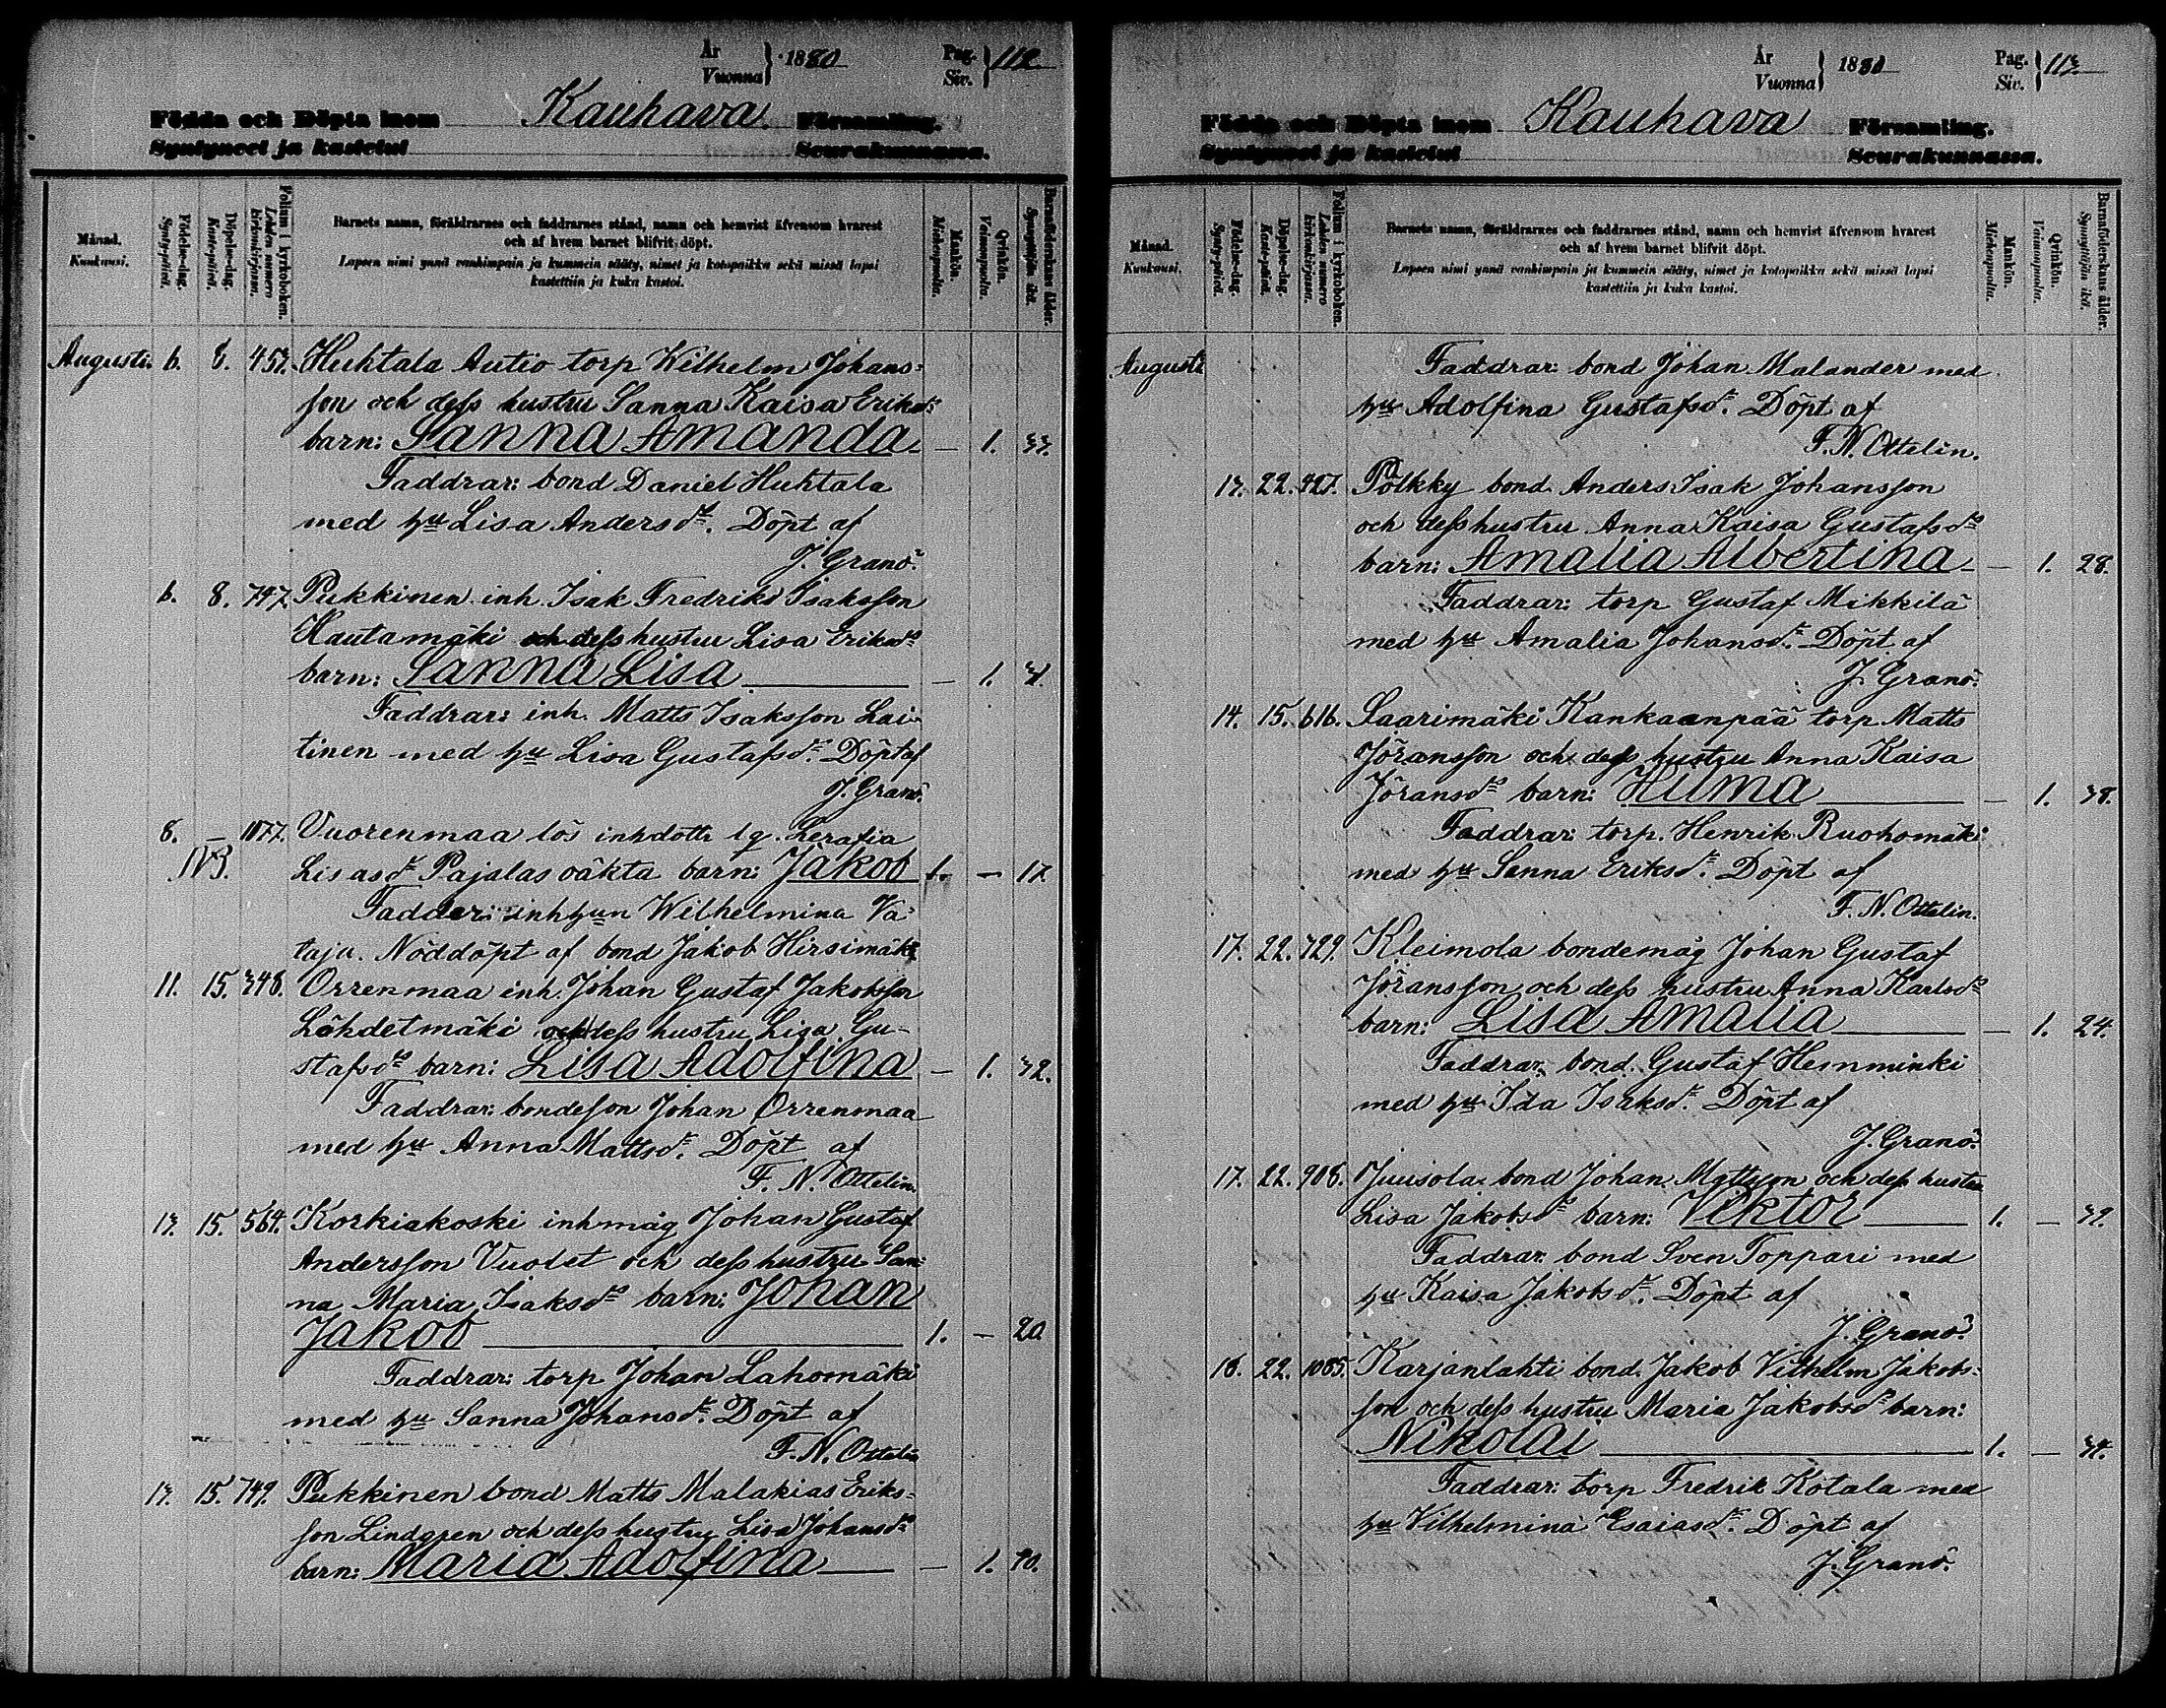 År
Vuonna } 1880 Pag. Siv. } 112.
Födda och Döpta inom Kauhava Församling.
Syntyneet ja kastetut Seurakunnassa.
Månad. Kuukausi.
Födelse-dag. Syntypäivä.
Döpelse-dag. Kastepäivä.
Folium i kyrkoboken. Lehden numero kirkonkirjassa.
Barnets namn, föräldrarnes och faddrarnes stånd, namn och hemvist äfvensom hvarest
och af hvem barnet blifvit döpt.
Lapsen nimi ynnä vanhimpain ja kummein sääty, nimet ja kotopaikka sekä missä lapsi
kastettiin ja kuka kastoi.
Mankön. Miehenpuolta.
Qvinkön. Vaimonpuolta.
Barnföderskans ålder. Synnyttäjän ikä.
Augusti. 6. 8. 453. Huhtala Autio torp Wilhelm Johans-
son och dess hustru Sanna Kaisa Eriksds
barn: Sanna Amanda — 1. 33.
Faddrar: bond Daniel Huhtala
med hu Lisa Andersdr. Döpt af
J. Granö.
6. 8. 747. Pukkinen inh. Isak Fredriks Isaksson
Hautamäki och dess hustru Lisa Eriksds
barn: Sanna Lisa — 1. 31.
Faddrar: inh. Matts Isaksson Lai-
tinen med hu Lisa Gustafsdr. Döpt af
J. Granö.
8. — 1077. Vuorenmaa lös inhdottr lg. Serafia
Lisasdr Pajalas oäkta barn: Jakob 1. — 17.
Fadder: inhhun Wilhelmina Va-
taja. Nöddöpt af bond Jakob Hirsimäki
11. 15. 348. Orrenmaa inh. Johan Gustaf Jakobsson
Lähdetmäki och dess hustru Lisa Gu-
stafsds barn: Lisa Adolfina — 1. 32.
Faddrar: bondeson Johan Orrenmaa
med hu Anna Mattsdr. Döpt af
F. N. Ottelin.
13. 15. 564. Korkiakoski inhmåg Johan Gustaf
Andersson Vuolet och dess hustru San-
na Maria Isaksds barn: Johan
Jakob 1. — 20.
Faddrar: torp Johan Lahomäki
med hu Sanna Johansdr. Döpt af
F. N. Ottelin
13. 15. 749. Pukkinen bond Matts Malakias Eriks-
son Lindgren och dess hustru Lisa Johansds
barn: Maria Adolfina — 1. 40.
År
Vuonna } 1880 Pag. Siv. } 113.
Födda och Döpta inom Kauhava Församling.
Syntyneet ja kastetut Seurakunnassa.
Månad. Kuukausi.
Födelse-dag. Syntypäivä.
Döpelse-dag. Kastepäivä.
Folium i kyrkoboken. Lehden numero kirkonkirjassa.
Barnets namn, föräldrarnes och faddrarnes stånd, namn och hemvist äfvensom hvarest
och af hvem barnet blifvit döpt.
Lapsen nimi ynnä vanhimpain ja kummein sääty, nimet ja kotopaikka sekä missä lapsi
kastettiin ja kuka kastoi.
Mankön. Miehenpuolta.
Qvinkön. Vaimonpuolta.
Barnföderskans ålder. Synnyttäjän ikä.
Augusti Faddrar: bond Johan Malander med
hu Adolfina Gustafsdr. Döpt af
F. N. Ottelin.
13. 22. 427. Pölkky bond Anders Isak Johansson
och dess hustru Anna Kaisa Gustafsds
barn: Amalia Albertina — 1. 28.
Faddrar: torp Gustaf Mikkilä
med hu Amalia Johansdr. Döpt af
J. Granö.
14. 15. 616. Saarimäki Kankaanpää torp Matts
Jöransson och dess hustru Anna Kaisa
Jöransds barn: Hilma — 1. 38.
Faddrar: torp. Henrik Ruohomäki
med hu Sanna Eriksdr. Döpt af
F. N. Ottelin.
17. 22. 729. Kleimola bondemåg Johan Gustaf
Jöransson och dess hustru Anna Karlsds
barn: Lisa Amalia — 1. 24.
Faddrar: bond. Gustaf Hemminki
med hu Ida Isaksdr. Döpt af
J. Granö.
17. 22. 908. Juusola bond Johan Mattsson och dess hustru
Lisa Jakobsds barn: Viktor 1. — 39.
Faddrar: bond Sven Toppari med
hu Kaisa Jakobsdr. Döpt af
J. Granö.
18. 22. 1085. Karjanlahti bond. Jakob Vilhelm Jakobs-
son och dess hustru Maria Jakobsds barn:
Nikolai 1. — 34.
Faddrar: torp Fredrik Kotala med
hu Vilhelmina Esaiasdr. Döpt af
J. Granö.